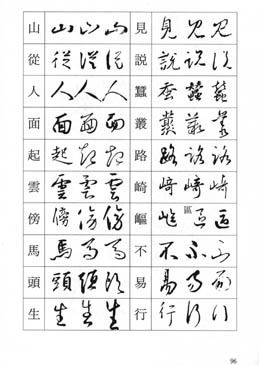 山 山 山 山 見 見 見 見
從 從 從 從 説 説 説 説
人 人 人 人 蠶 蚕 蠶 蠶
面 面 面 面 叢 叢 叢 叢
起 起 起 起 路 路 路 路
雲 雲 雲 雲 崎 崎 崎 崎
傍 傍 傍 傍 嶇 嶇 區 區 區
馬 馬 馬 馬 不 不 不 不
頭 頭 頭 頭 易 易 易 易
生 生 生 生 行 行 行 行
96